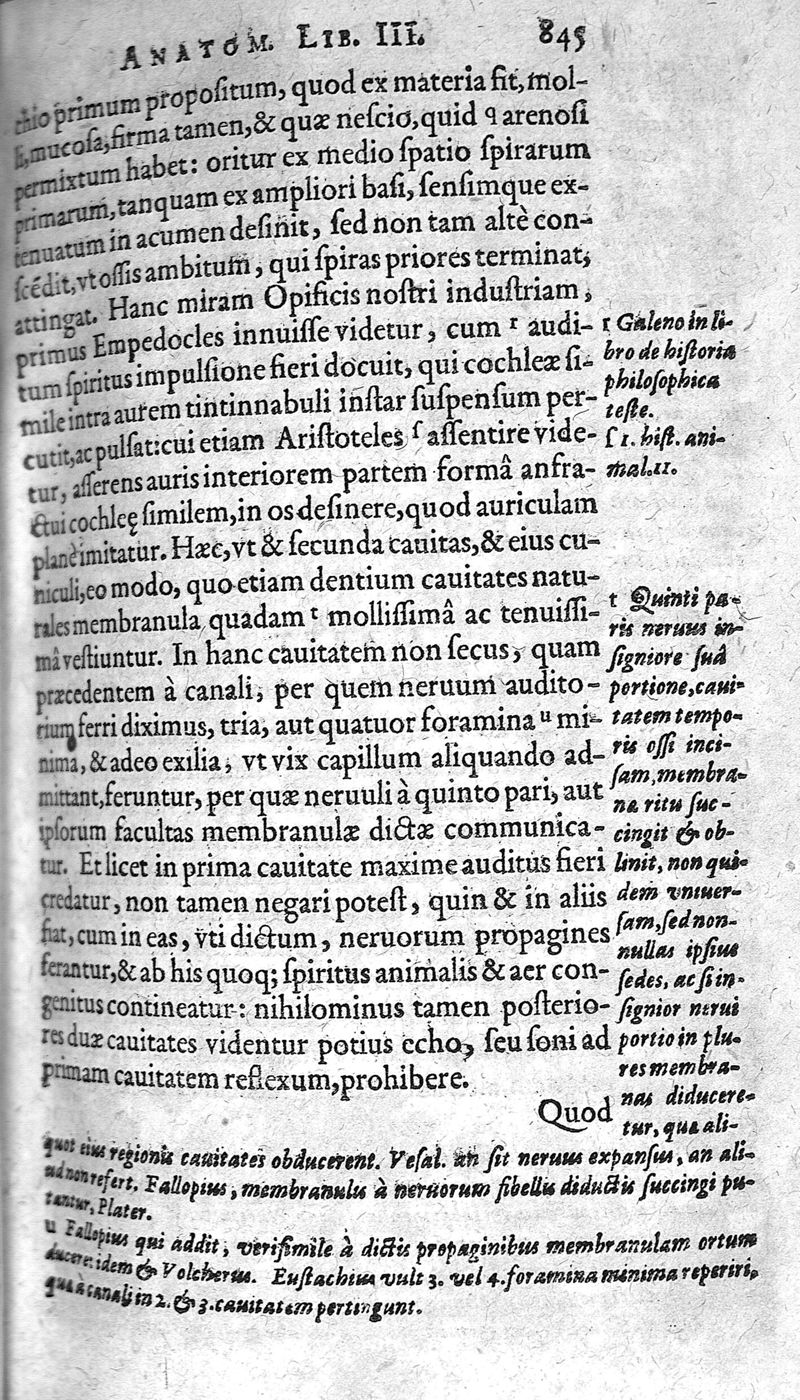 ANATOM. LIB. III. 845
primum propoſitum, quod ex materia fit, mol-
li, mucoſa, firma tamen, & quæ neſcio, quid q arenoſi
permixtum habet: oritur ex medio ſpatio ſpirarum
primarum, tanquam ex ampliori baſi, ſenſimque ex-
tenuatum in acumen deſinit, ſed non tam altè con-
ſcédit, vt oſſis ambitum, qui ſpiras priores terminat,
attingat. Hanc miram Opificis noſtri induſtriam,
primus Empedocles innuiſſe videtur, cum r audi-
tum ſpiritus impulſione fieri docuit, qui cochleæ ſi-
mile intra aurem tintinnabuli inſtar ſuſpenſum per-
cutit, ac pulſat: cui etiam Ariſtoteles ſ aſſentire vide-
tur, aſſerens auris interiorem partem formâ anfra-
ctui cochleę ſimilem, in os deſinere, quod auriculam
planè imitatur. Hæc, vt & ſecunda cauitas, & eius cu-
niculi, eo modo, quo etiam dentium cauitates natu-
rales membranula quadam t molliſſimâ ac tenuiſſi-
mâ veſtiuntur. In hanc cauitatem non ſecus, quam
præcedentem à canali, per quem neruum audito-
rium ferri diximus, tria, aut quatuor foramina u mi-
nima, & adeo exilia, vt vix capillum aliquando ad-
mittant, feruntur, per quæ neruuli à quinto pari, aut
ipſorum facultas membranulæ dictæ communica-
tur. Et licet in prima cauitate maxime auditus fieri
credatur, non tamen negari poteſt, quin & in aliis
fiat, cum in eas, vti dictum, neruorum propagines
ferantur, & ab his quoq; ſpiritus animalis & aer con-
genitus contineatur: nihilominus tamen poſterio-
res duæ cauitates videntur potius echo, ſeu ſoni ad
primam cauitatem reflexum, prohibere.
Quod
r Galeno in li-
bro de hiſtoria
philoſophica
teſte.
ſ 1. hiſt. ani-
mal. 11.
t Quinti pa-
ris neruus in-
ſigniore ſuâ
portione, caui-
tatem tempo-
ris oſſi inci-
ſam, membra-
næ ritu ſuc-
cingit & ob-
linit, non qui-
dem vniuer-
ſam, ſed non-
nullas ipſius
ſedes, ac ſi in-
ſignior nerui
portio in plu-
res membra-
nas diducere-
tur, quæ ali-
quot eius regionis cauitates obducerent. Veſal. an ſit neruus expanſus, an ali-
ud non refert. Fallopius, membranulis à neruorum fibellis diductis ſuccingi pu-
tantur, Plater.
u Fallopius qui addit, veriſimile à dictis propaginibus membranulam ortum
ducere: idem & Volcherus. Euſtachius vult 3. vel 4. foramina minima reperiri,
quæ à canali in 2. & 3. cauitatem pertingunt.